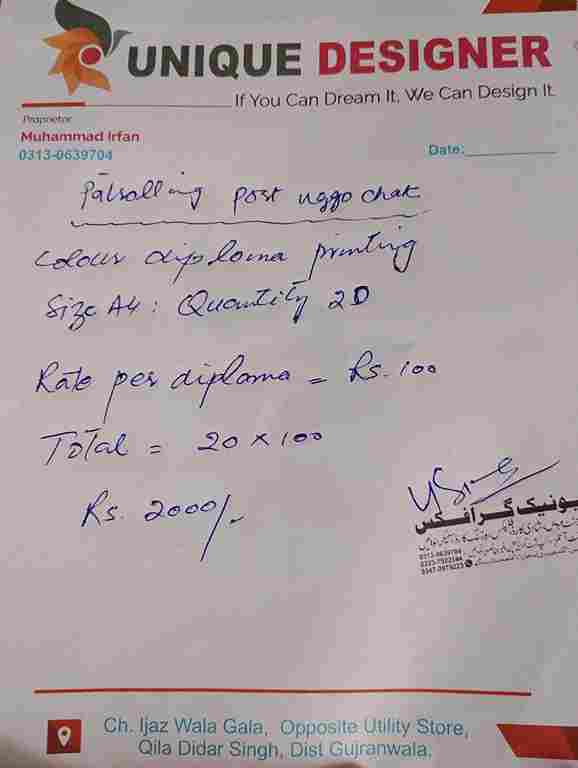 UNIQUE DESIGNER
If You Can Dream It, We Can Design It.
Proprietor
Muhammad Irfan
0313-0639704
Date:
Patrolling post uggo chak
Colour diploma printing
Size A4: Quantity 20
Rate per diploma = Rs. 100
Total = 20 × 100
Rs. 2000/-
یونیک گرافکس
0313-0639704
Ch. Ijaz Wala Gala, Opposite Utility Store,
Qila Didar Singh, Dist Gujranwala.